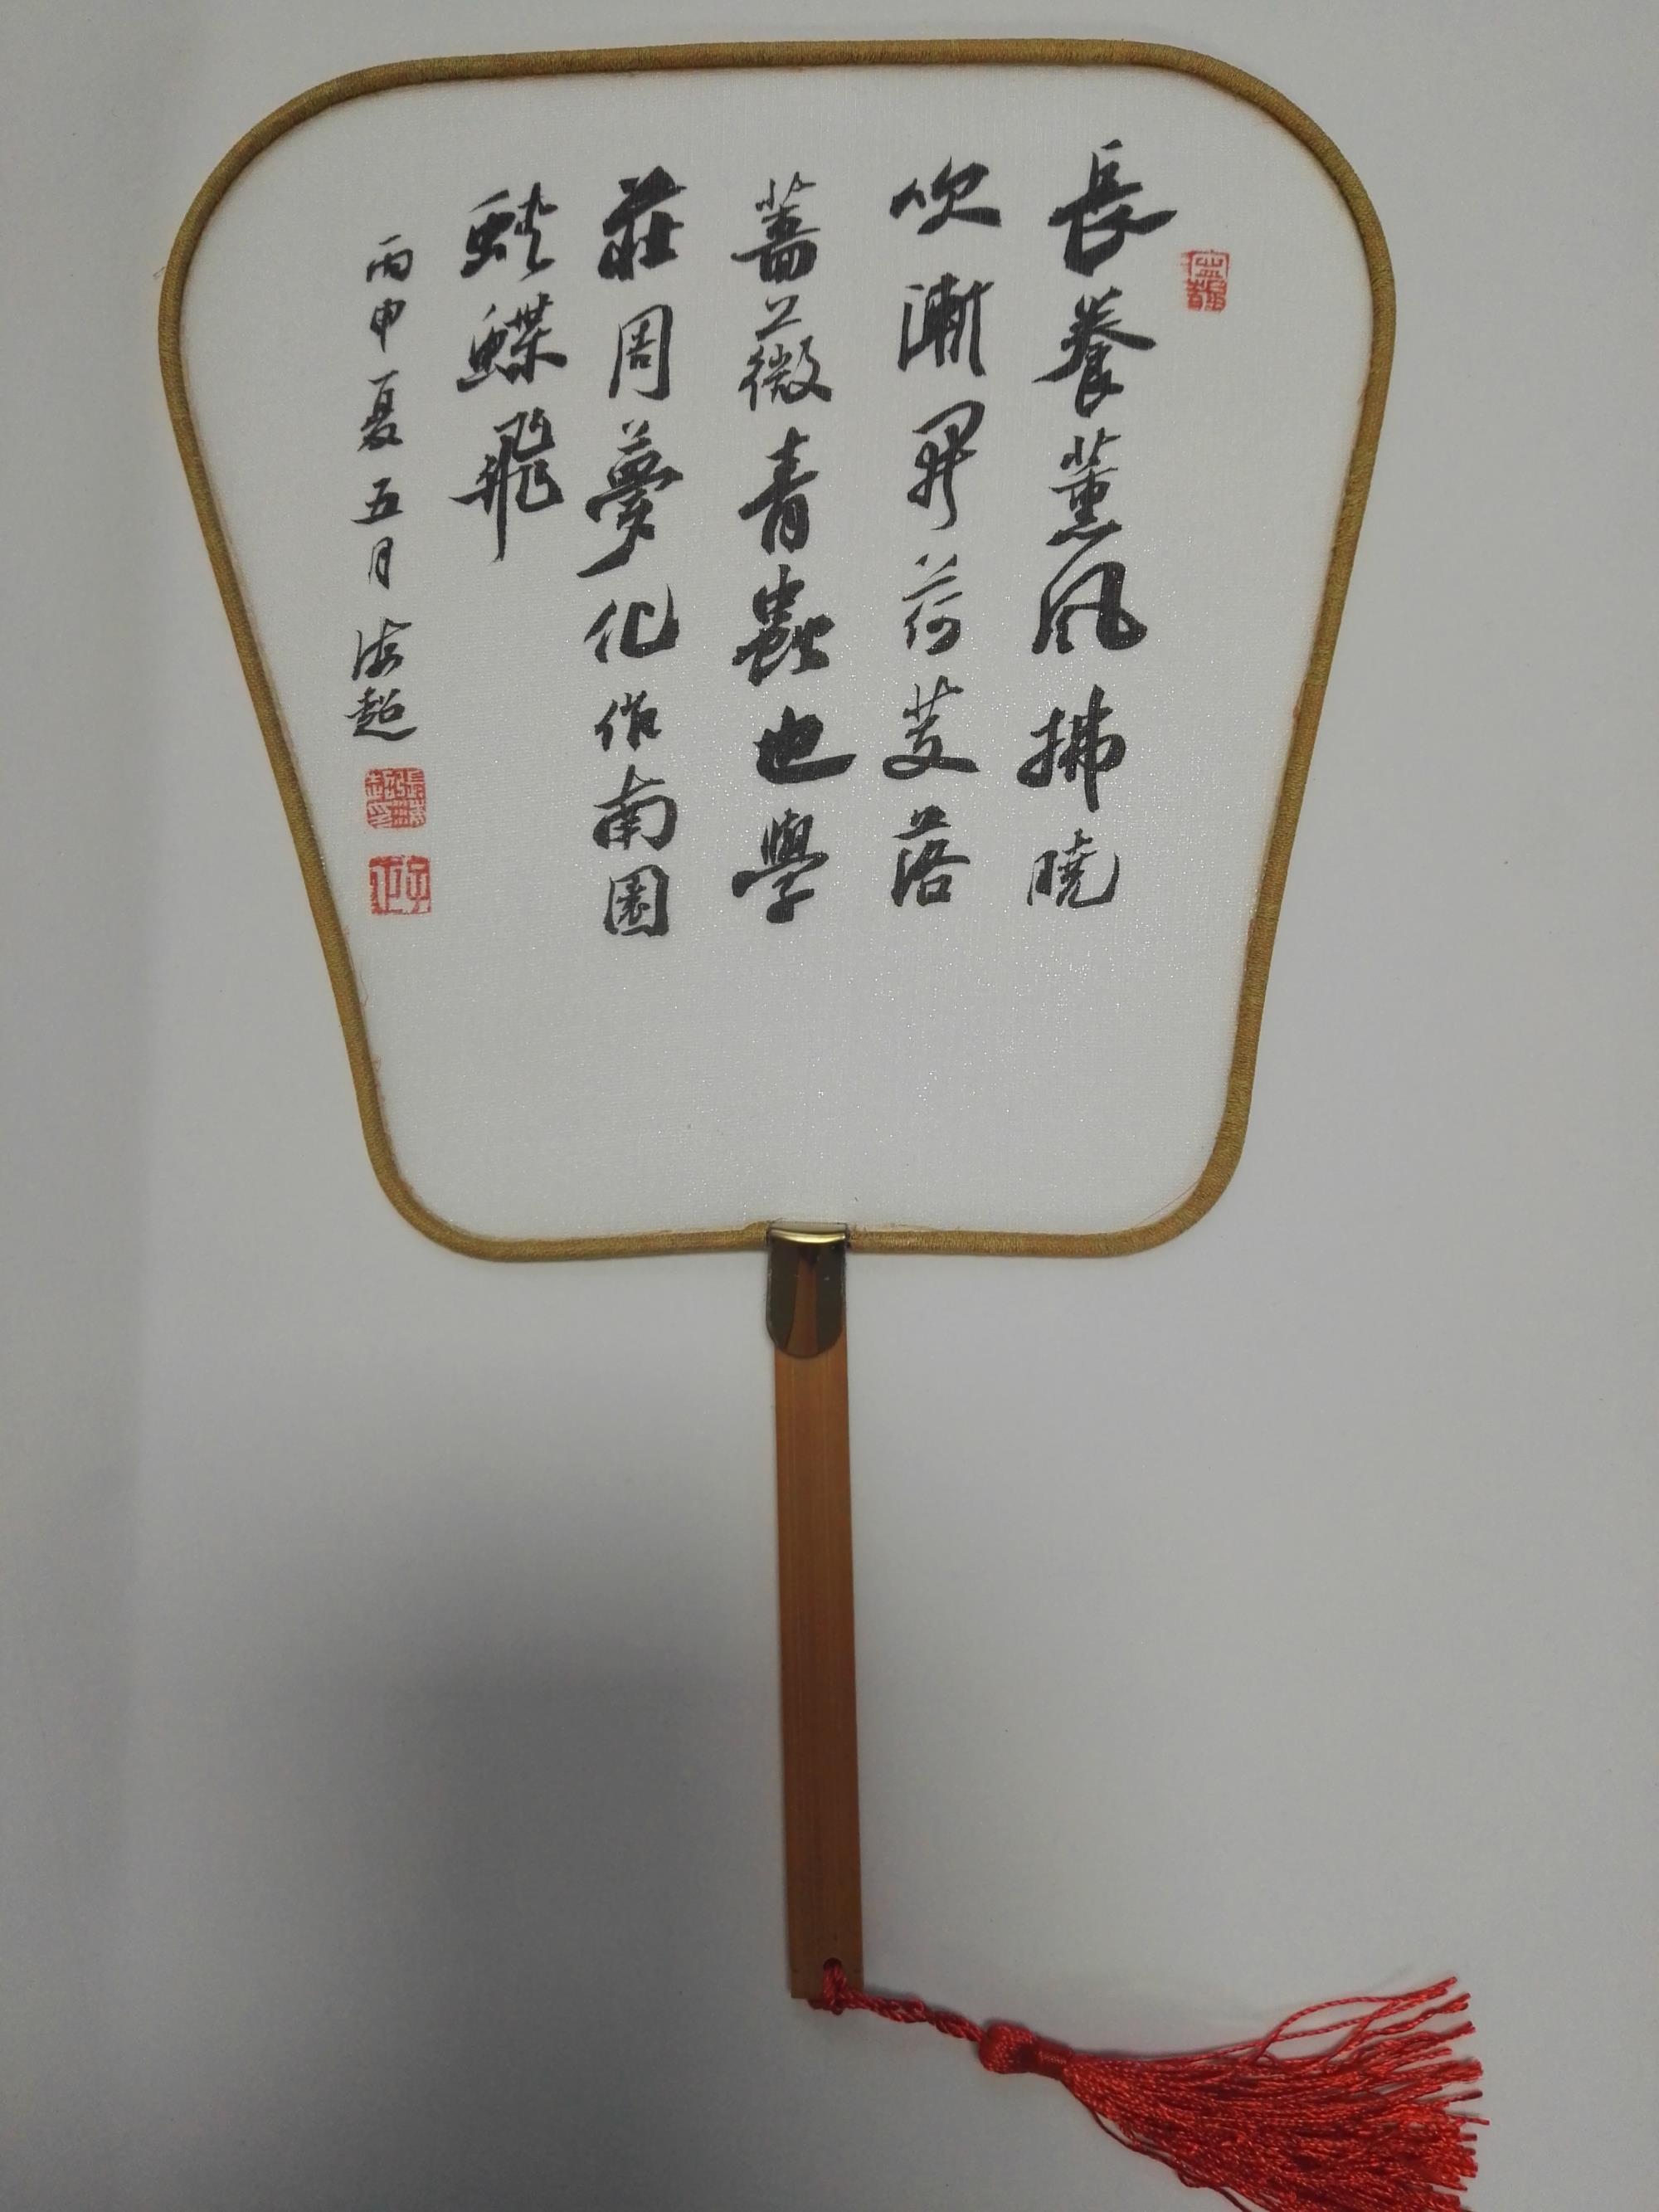 長養薰風拂曉
吹漸開荷芰落
薔薇青蟲也學
莊周夢化作南園
蛺蝶飛
丙申夏五月海超